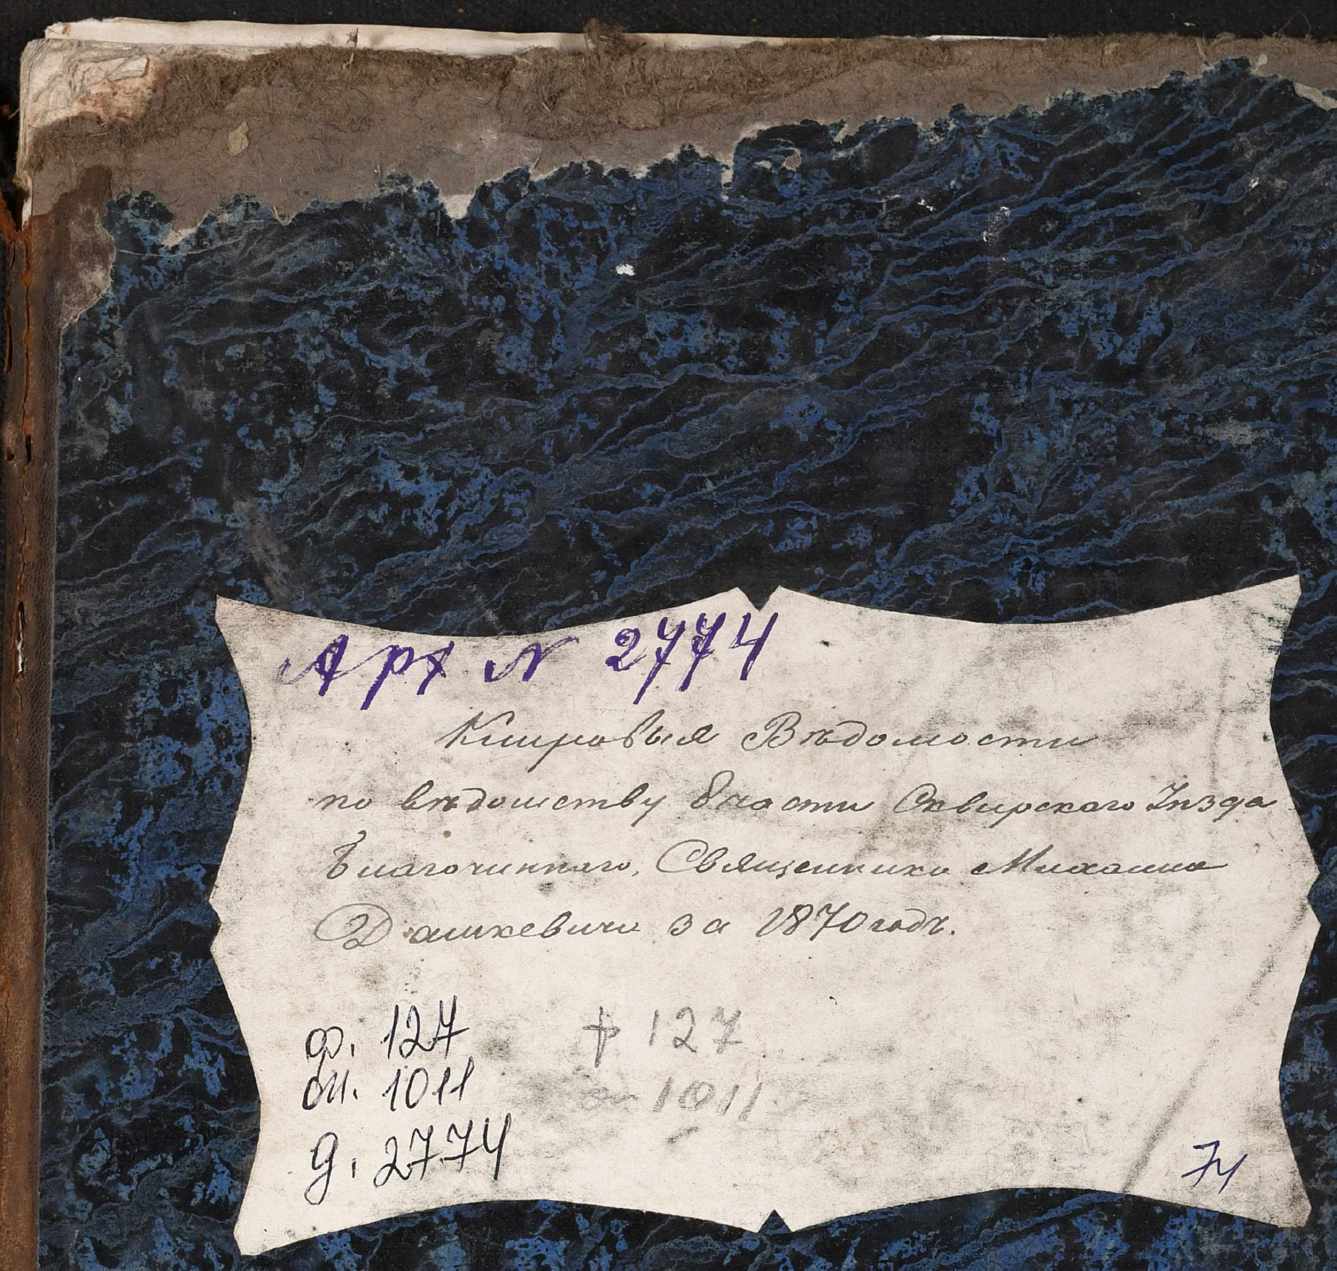 Арх № 2774
Клировыя Вѣдомости
по вѣдомству 8 части Сквирского Уѣзда
Благочиннаго, Священника Михаила
Дашкевича за 1870 годъ.
ф. 127
ф 127
оп. 1011
оп 1011
д. 2774
74